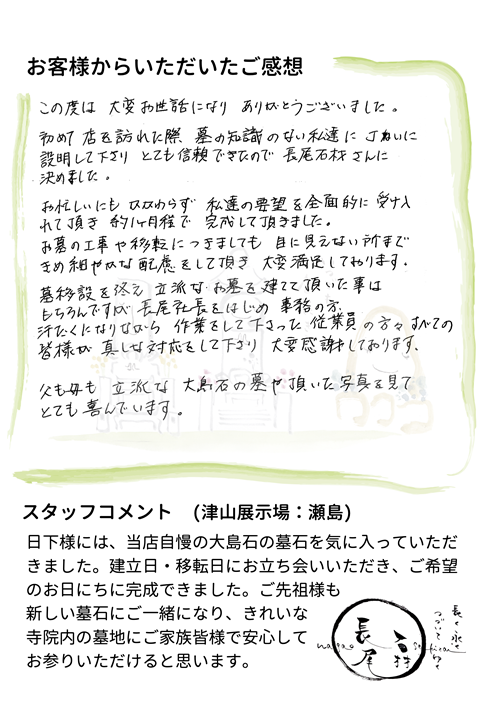 お客様からいただいたご感想
この度は 大変お世話になり ありがとうございました。
初めて 店を訪れた際 墓の知識のない私達に 丁ねいに
説明して下さり とても信頼できたので 長尾石材さんに
決めました。
お忙しいにも かかわらず 私達の要望を全面的に受け入
れて頂き 約1ヶ月程で 完成して頂きました。
お墓の工事や移転につきましても 目に見えない所まで
きめ細やかな配慮をして頂き 大変満足しております。
墓移設を終え 立派なお墓を建てて頂いた事は
もちろんですが 長尾社長をはじめ 事務の方、
汗だくになりながら 作業をして下さった 従業員の方々 すべての
皆様が 真しな対応をして下さり 大変感謝しております、
父も母も 立派な 大島石の墓や頂いた写真を見て
とても喜んでいます。
スタッフコメント (津山展示場：瀬島)
日下様には、当店自慢の大島石の墓石を気に入っていただ
きました。建立日・移転日にお立ち会いいただき、ご希望
のお日にちに完成できました。ご先祖様も
新しい墓石にご一緒になり、きれいな
寺院内の墓地にご家族皆様で安心して
お参りいただけると思います。
長尾石材